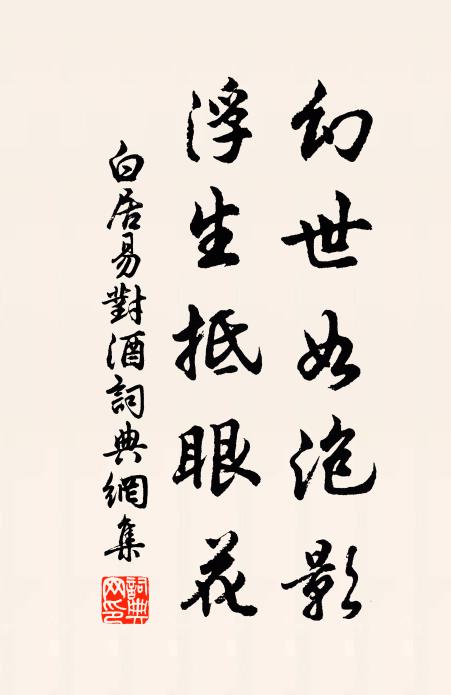 幻世如泡影
浮生抵眼花
白居易對酒詞典網集
詞典
网印